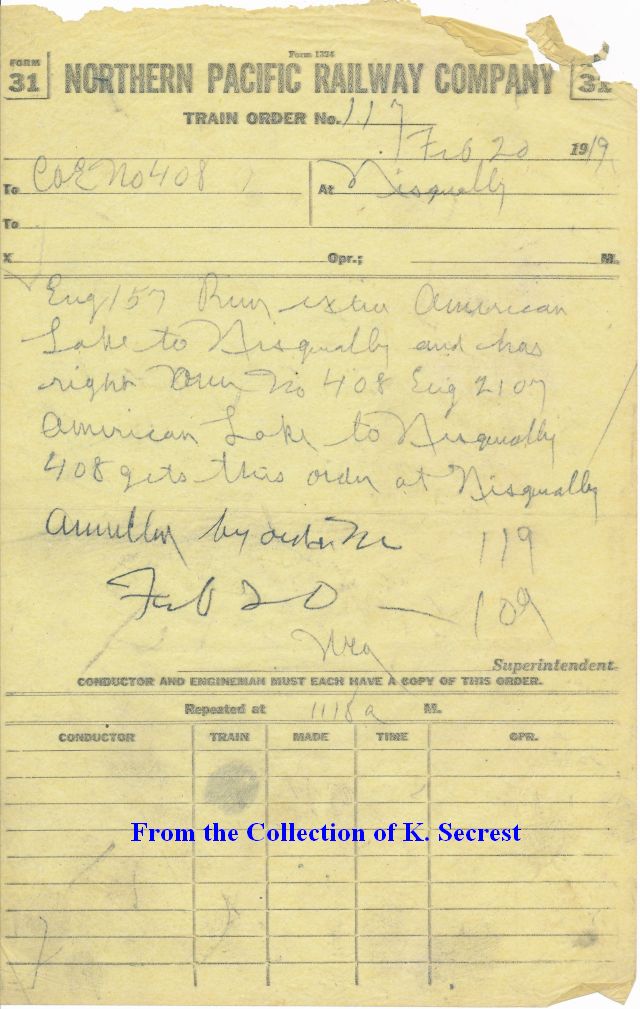 Form 1324
FORM 31 NORTHERN PACIFIC RAILWAY COMPANY 31
TRAIN ORDER No. 117
Feb 20 1919
To C&E No 408 At Nisqually
To
X Opr.; M.
Eng 157 Run extra American
Lake to Nisqually and has
right over No 408 Eng 2107
American Lake to Nisqually
408 gets this order at Nisqually
by order No 119
Feb 20 — 109
Superintendent
CONDUCTOR AND ENGINEMAN MUST EACH HAVE A COPY OF THIS ORDER.
Repeated at 1118a M.
CONDUCTOR TRAIN MADE TIME OPR.
From the Collection of K. Secrest